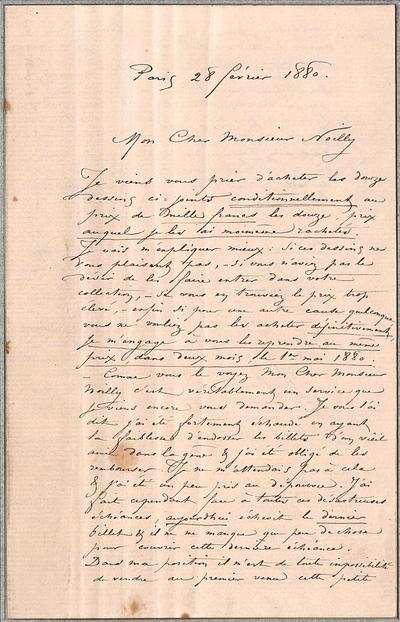 Paris 28 février 1880.
Mon Cher Monsieur Noilly
Je viens vous prier d'acheter les douze
dessins ci-joints conditionnellement au
prix de mille francs les douze, prix
auquel je les ai moi même rachetés.
Je vais m'expliquer mieux : Si ces dessins ne
vous plaisent pas, - si vous n'aviez pas le
désir de les faire entrer dans votre
collection, - si vous en trouviez le prix trop
élevé, - enfin si pour une autre cause quelconque
vous ne vouliez pas les acheter définitivement,
je m'engage à vous les reprendre au même
prix dans deux mois, le 1er mai 1880.
Comme vous le voyez Mon Cher Monsieur
Noilly c'est véritablement un service que
je viens encore vous demander. Je vous l'ai
dit j'ai été fortement échaudé en ayant
la faiblesse d'endosser les billets d'un vieil
ami dans la gêne & j'ai été obligé de les
rembourser. Je ne m'attendais pas à cela
& j'ai été un peu pris au dépourvu. J'ai
fait cependant face à toutes ces désastreuses
échéances, aujourdhui échéoit le dernier
billet & il ne me manque que peu de chose
pour couvrir cette dernière échéance.
Dans ma position il m'est de toute impossibilité
de vendre au premier venu cette petite